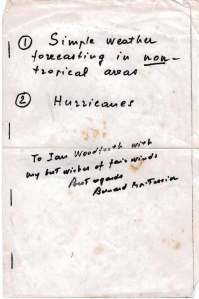 ① Simple weather
forecasting in non-
tropical areas
② Hurricanes
To Ian Woodforth with
my best wishes of fair winds
Best regards
Bernard